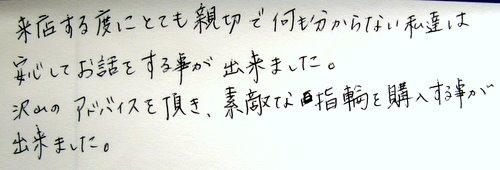 来店する度にとても親切で何も分からない私達は
安心してお話をする事が出来ました。
沢山のアドバイスを頂き、素敵な指輪を購入する事が
出来ました。